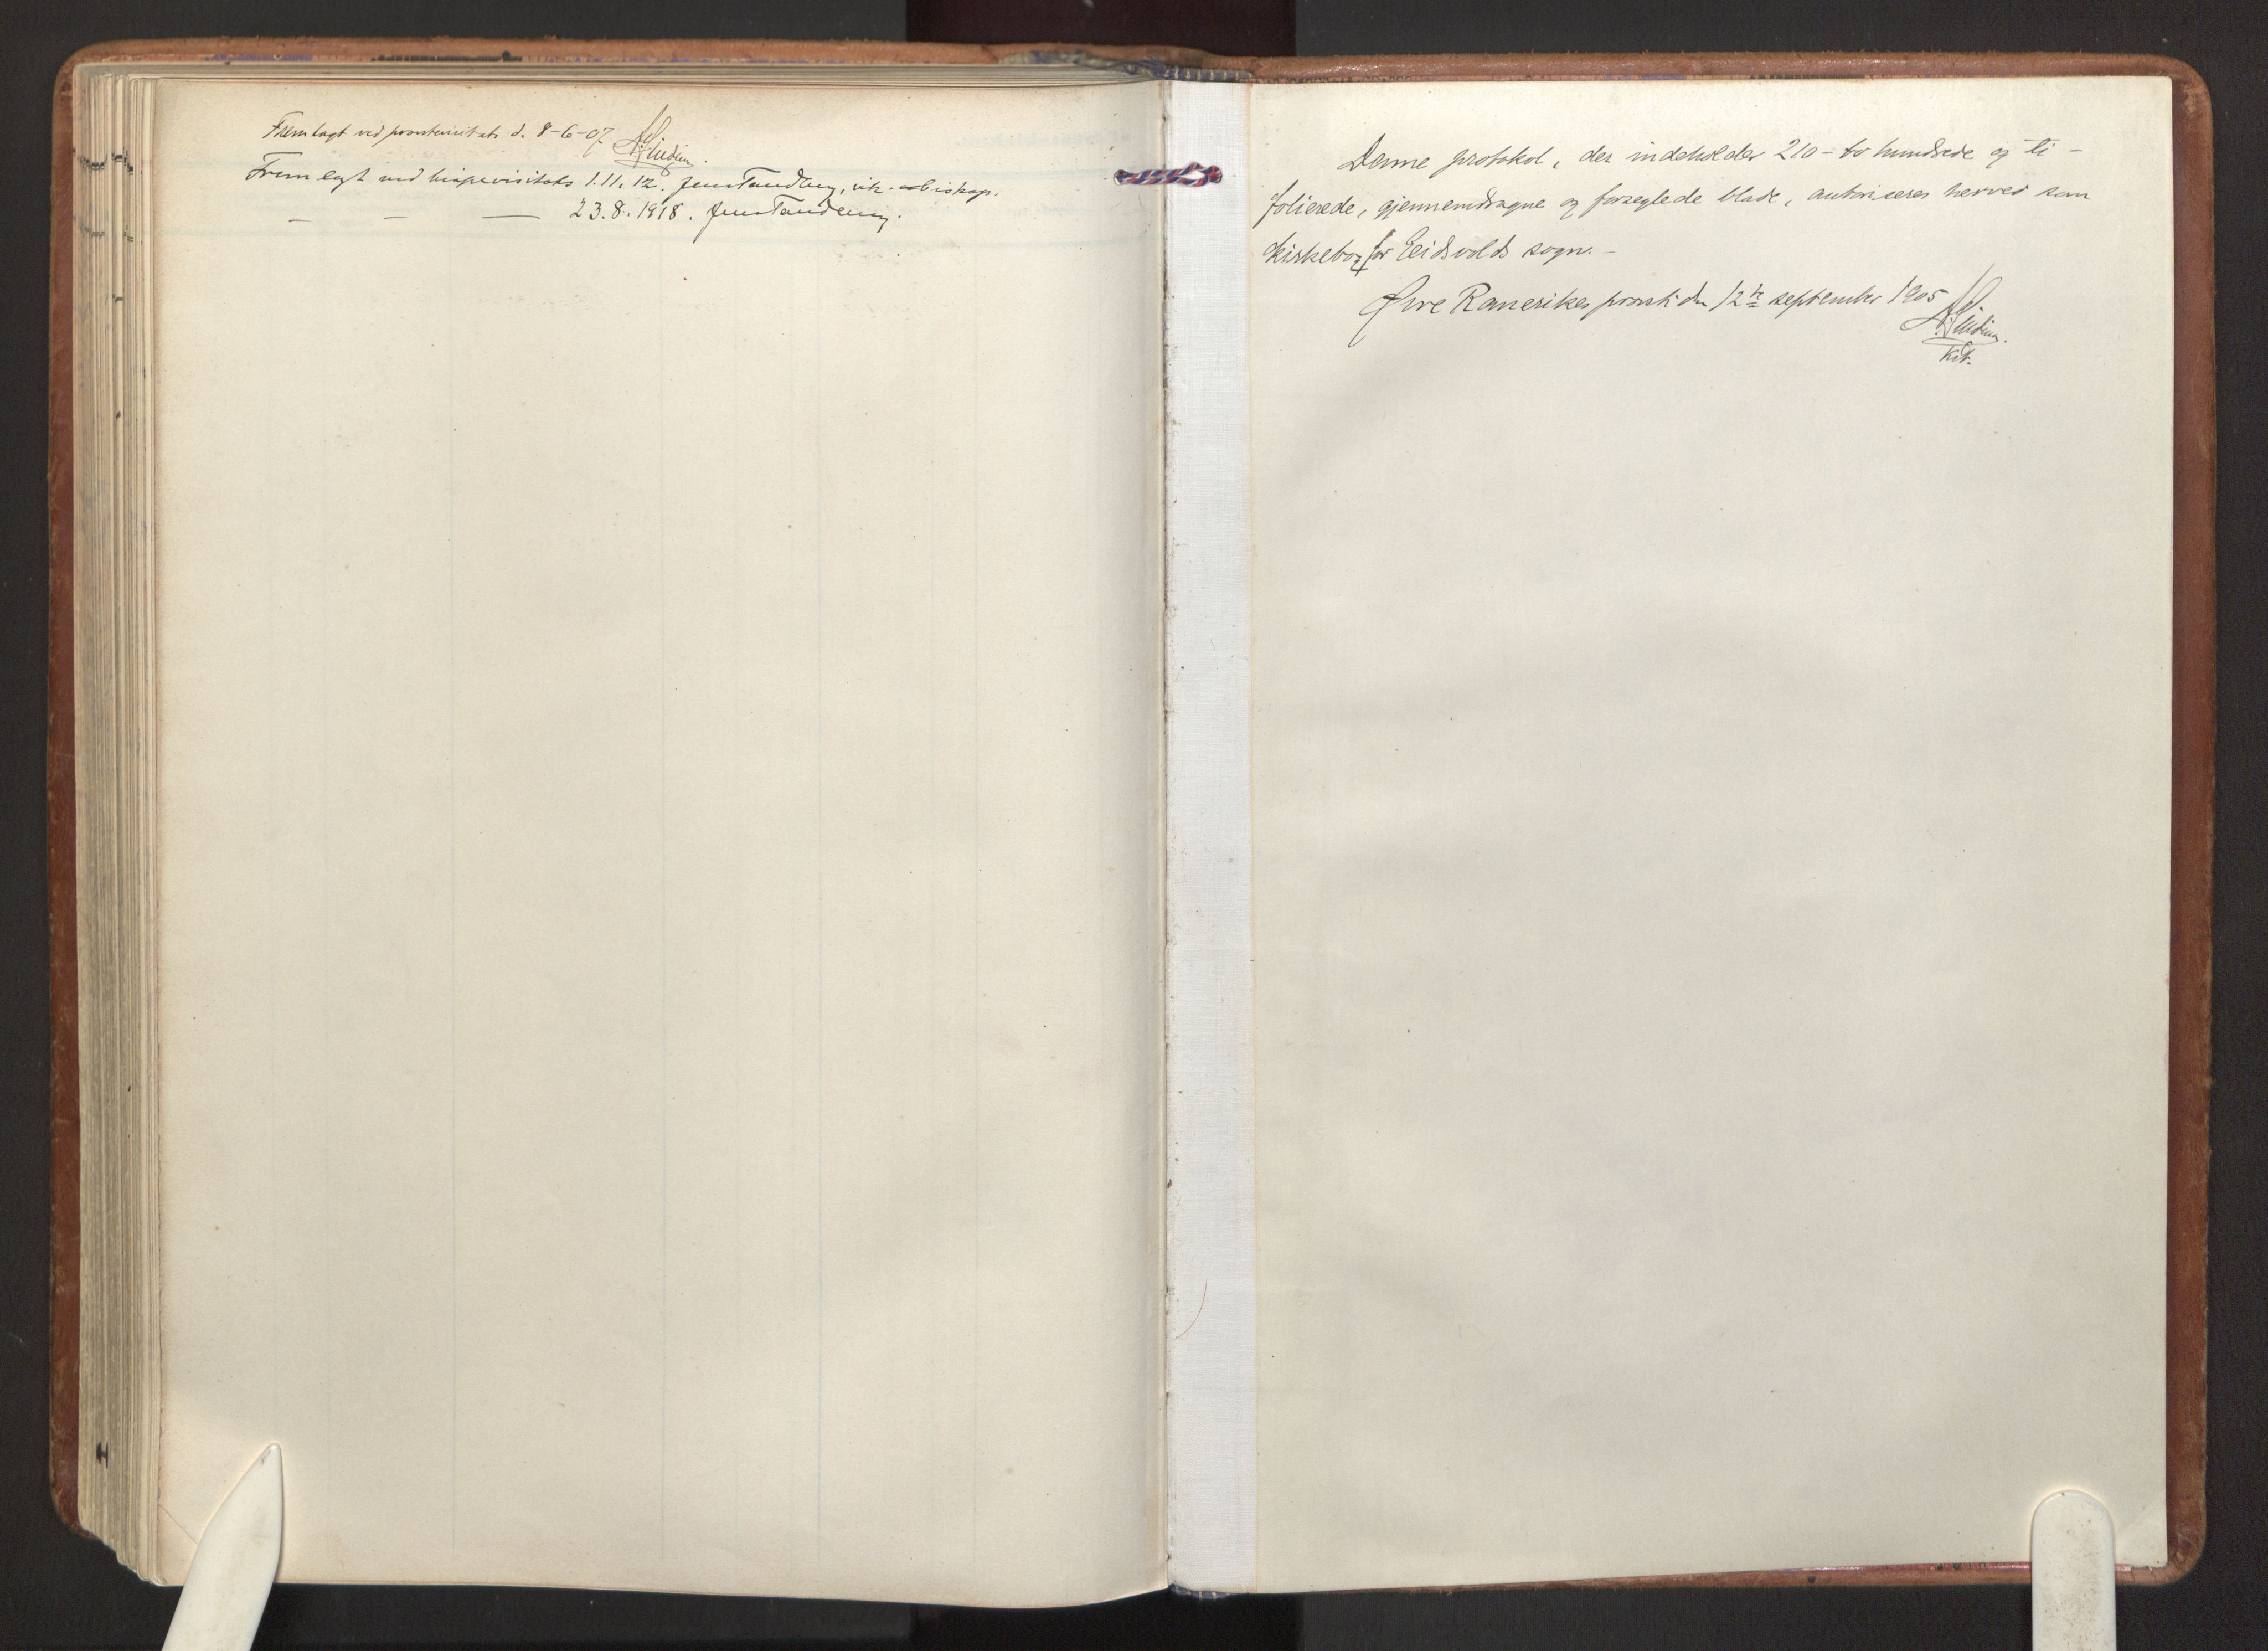 Fremlagt ved provstevisitats d. 8-6-07
Fremlagt ved bispevisitats 1.11.12. Jens Tandberg, vik. biskop.
— — — 23.8.1918. Jens Tandberg.
Denne protokol, der indeholder 210 - to hundrede og ti -
folierede, gjennemdragne og forseglede blade, autoriseres herved som
kirkebog for Eidsvolds sogn. -
Øvre Romerikes provsti den 12te september 1905
kst.